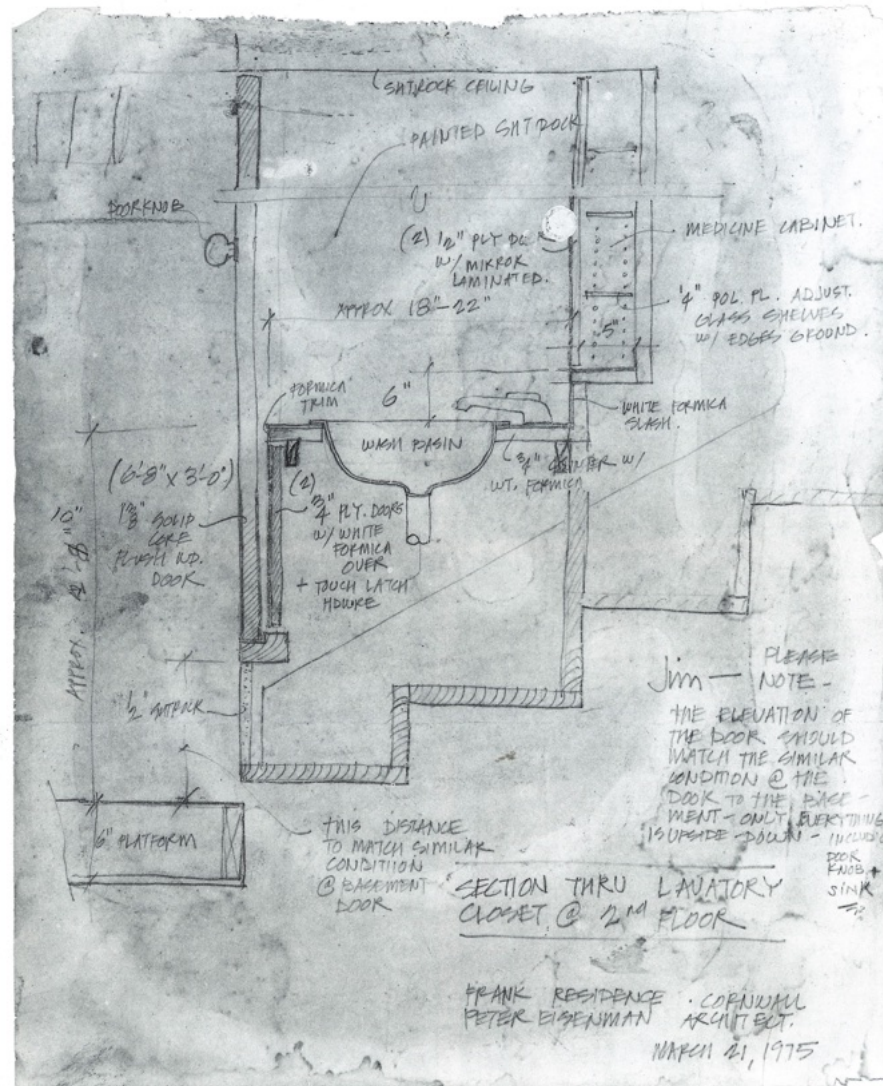 SHTROCK CEILING
PAINTED SHTROCK
DOORKNOB
(2) 1/2" PLY
W/ MIRROR
LAMINATED.
MEDICINE CABINET.
APPROX 18"-22"
1/4" POL. PL. ADJUST.
GLASS SHELVES
W/ EDGES GROUND.
5"
FORMICA
TRIM
6"
WHITE FORMICA
SLASH.
WASH BASIN
3/4" COUNTER W/
WT. FORMICA
(6'-8" X 3'-0")
1 3/8" SOLID
CORE
FLUSH
DOOR
(2)
3/4" PLY. DOORS
W/ WHITE
FORMICA
OVER
+ TOUCH LATCH
HDWRE
10"
APPROX.
1/2" SHTROCK
6" PLATFORM
THIS DISTANCE
TO MATCH SIMILAR
CONDITION
@ BASEMENT
DOOR
Jim — PLEASE
NOTE -
THE ELEVATION OF
THE DOOR SHOULD
MATCH THE SIMILAR
CONDITION @ THE
DOOR TO THE BASE-
MENT - ONLY EVERYTHING
IS UPSIDE-DOWN - INCLUD'G
DOOR
KNOB +
SINK
SECTION THRU LAVATORY
CLOSET @ 2nd FLOOR
FRANK RESIDENCE · CORNWALL
PETER EISENMAN ARCHITECT.
MARCH 21, 1975